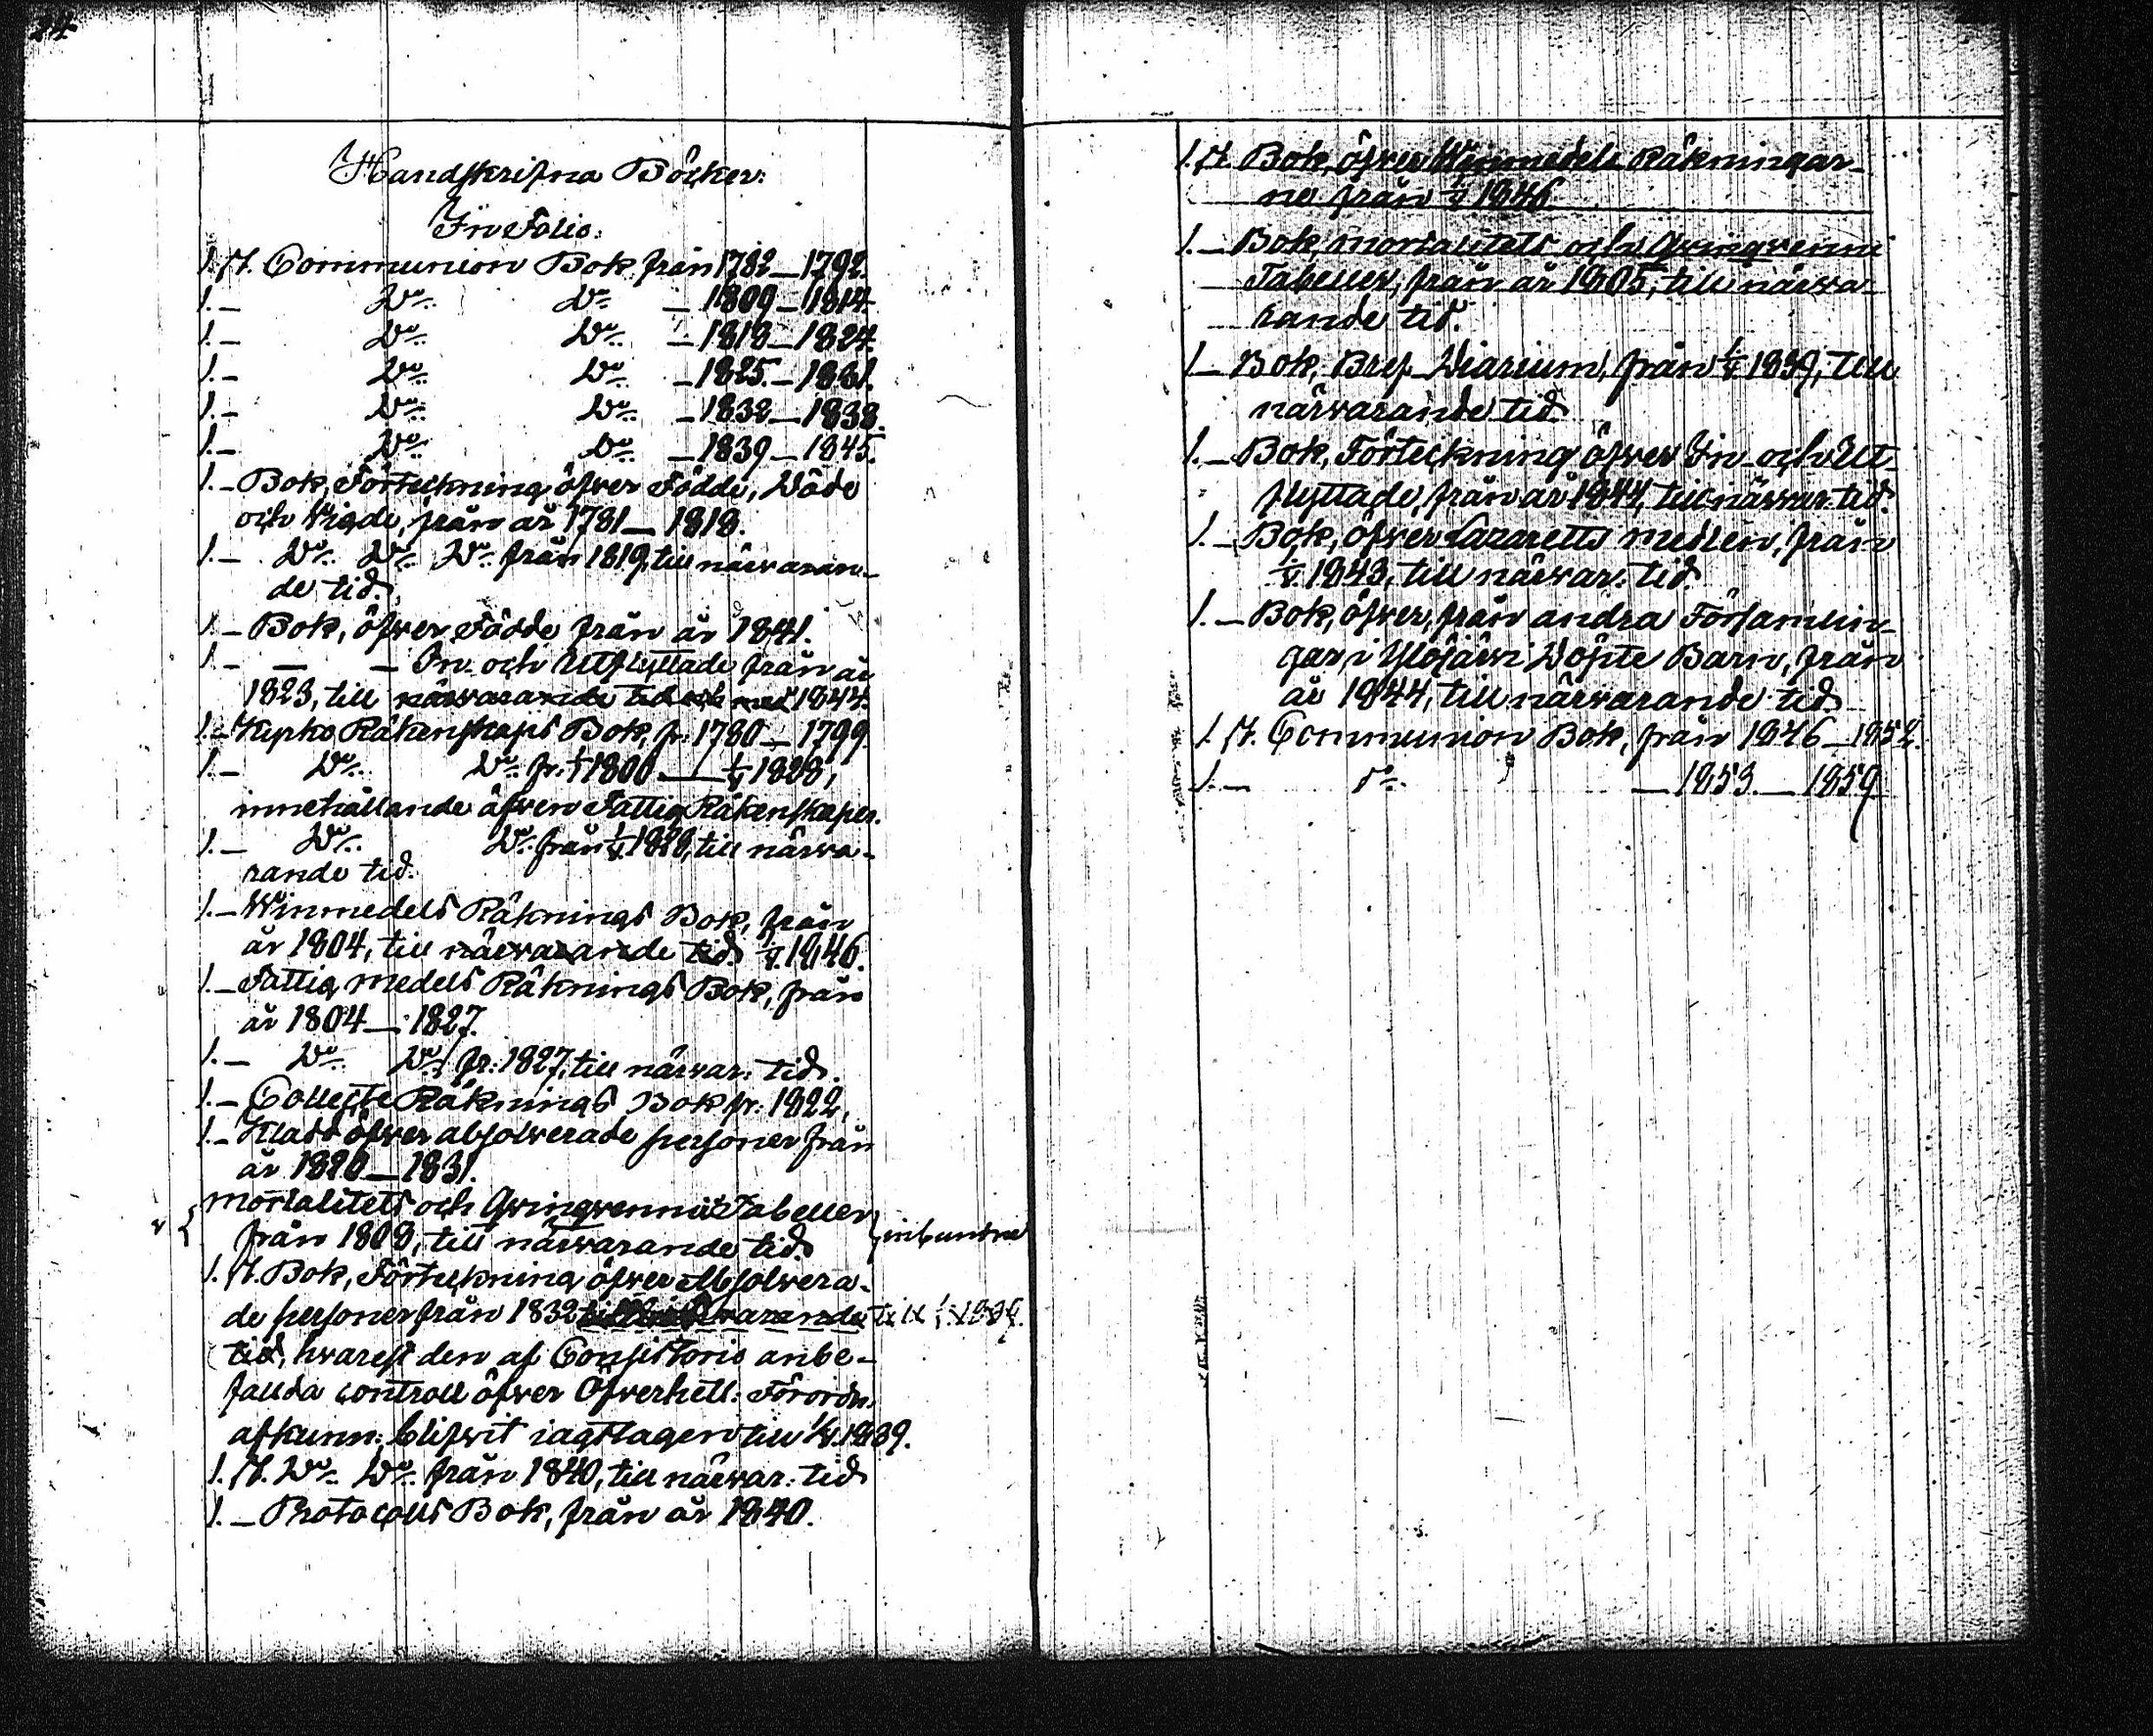 24
Handskrifna Böcker:
In Folio:
1. st. Communion Bok från 1782 — 1792.
1. — Do Do — 1809 — 1817.
1. — Do Do — 1818 — 1824.
1. — Do Do — 1825. — 1831.
1. — Do Do — 1832 — 1838.
1. — Do Do — 1839 — 1845.
1. — Bok, Förteckning öfver Födde, Döde
och Vigde, från år 1781 — 1818.
1. — Do Do Do från 1819, till närvaran-
de tid.
1. — Bok, öfver Födde från år 1841.
1. — — — In- och Utflyttade från år
1823, till närvarande tid och med 1844.
1. — Kyrko Räkenskaps Bok, fr. 1780 — 1799.
1. — Do Do fr. 1/5 1800 — 1/5 1828,
innehållande äfven Fattig Räkenskaper.
1. — Do Do från 1/5 1828, till närva-
rande tid.
1. — Winmedels Räknings Bok, från
år 1804, till närvarande tid 1/5 1846.
1. — Fattig medels Räknings Bok, från
år 1804 — 1827.
1. — Do Do fr. 1827, till närvar. tid.
1. — Collecte Räknings Bok fr. 1822,
1. — Kladd öfver absolverade personer från
år 1820 — 1831.
Mortalitets och Qvinqvennii Tabeller
från 1808, till närvarande tid } inbundne
1. st. Bok, Förteckning öfver Absolvera-
de personer från 1832 till närvarande till
tid, hvarest den af Consistorio anbe-
fallda controll öfver Öfverhetl. Förordn.
afkunn. blifvit iagttagen till 1/5 1839.
1. st. Do Do från 1840, till närvar. tid
1. — Protocolls Bok, från år 1840.
1. st. Bok, öfver Winmedels Räkningar-
ne från 1/5 1846
1. — Bok, Mortalitets och Qvinqvenni
Tabeller, från år 1805, till närva-
rande tid.
1. — Bok, Bref-Diarium, från 1/5 1839, till
närvarande tid.
1. — Bok, Förteckning öfver In- och Ut-
flyttade, från år 1844, till närvar. tid.
1. — Bok, öfver Lazaretts medlen, från
1/5 1843, till närvar. tid
1. — Bok, öfver, från andra Församlin-
gar, i Ylöjärvi Döpte Barn, från
år 1844, till närvarande tid
1. st. Communion Bok, från 1846 — 1852.
1. — do — 1853. — 1859